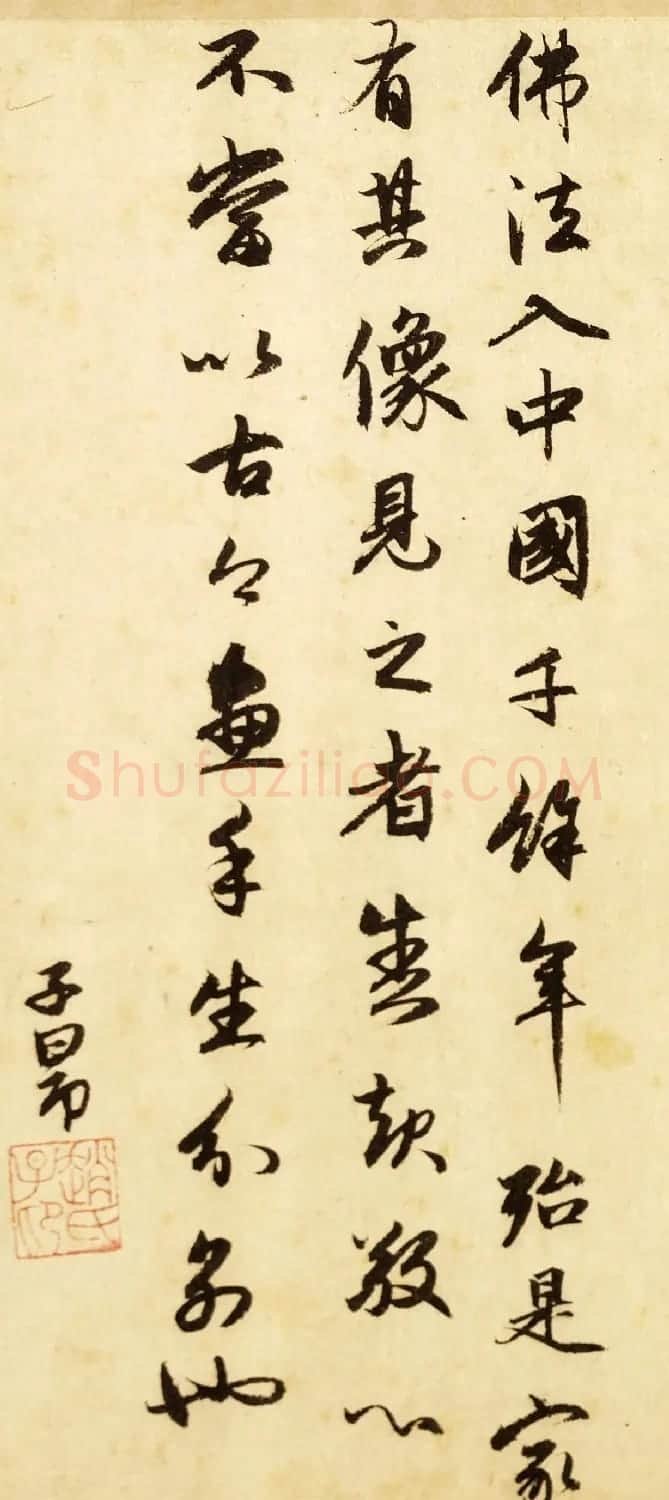 佛法入中國千餘年殆是家
有其像見之者敬心
不當以古今畫手生分別也
子昂
趙氏子昂
Shufaziliao.COM